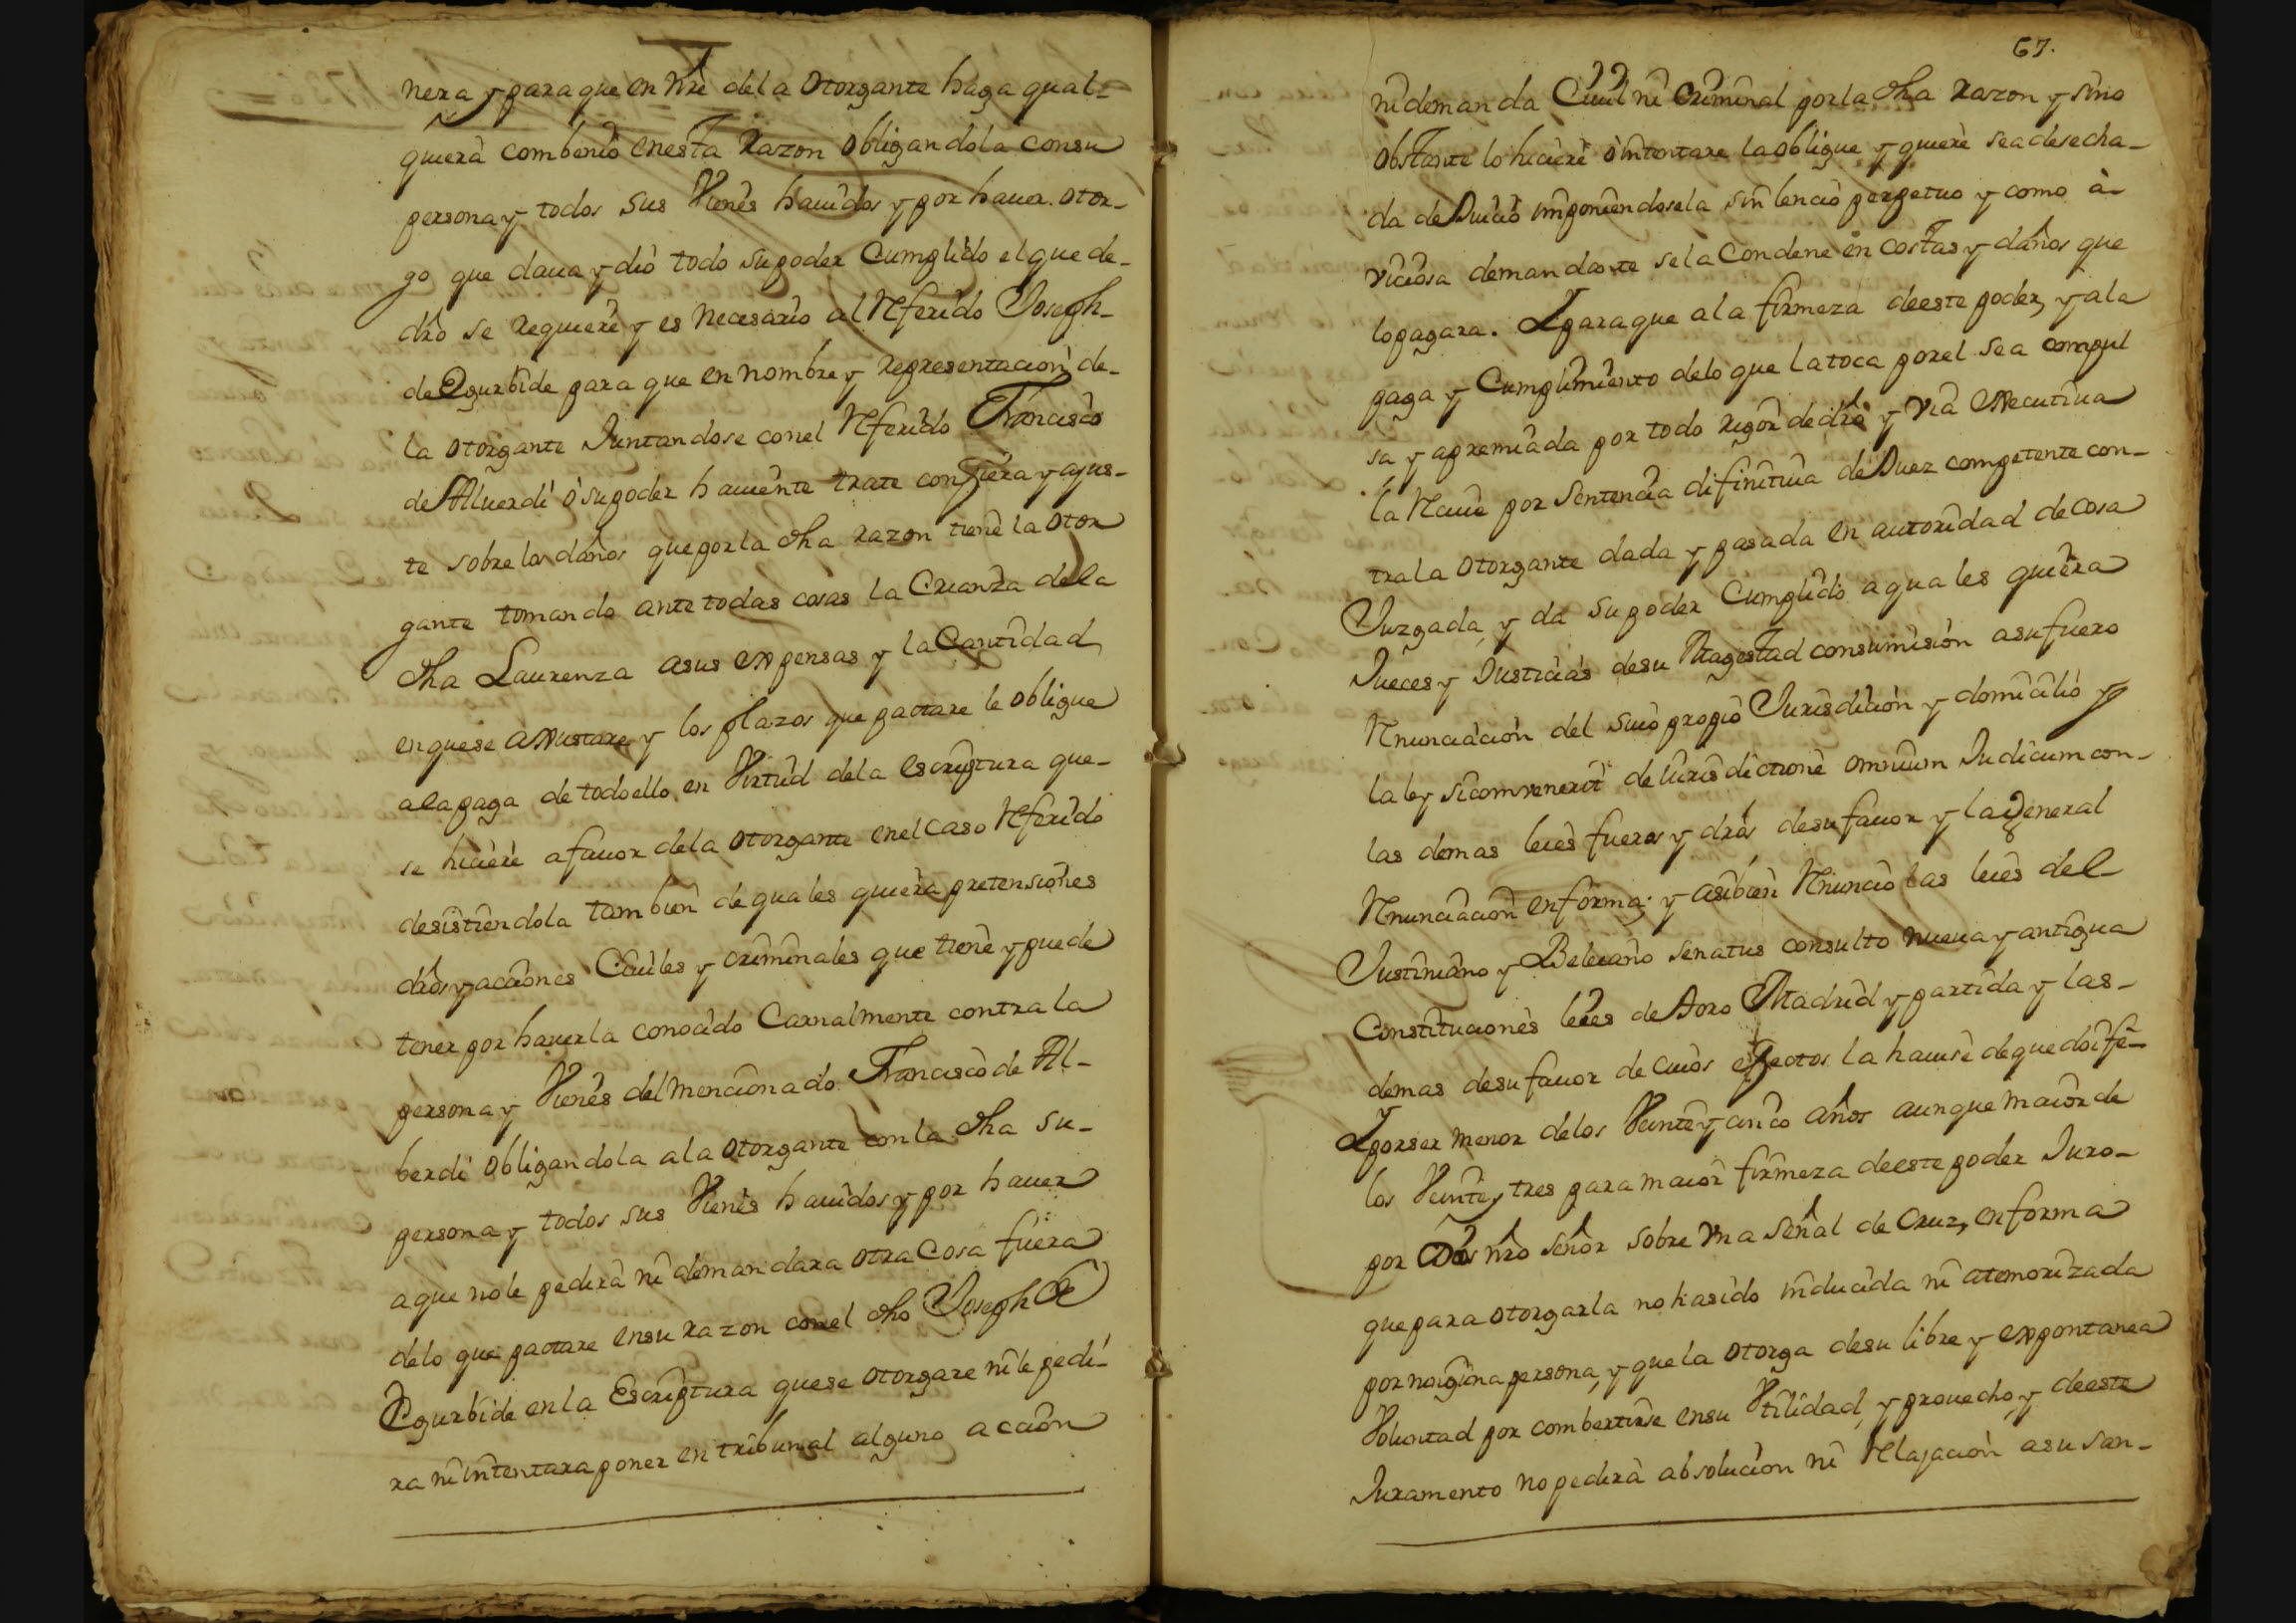 nera y para que en nre dela otorgante haga qual-
quiera combenio en esta Razon obligandola con su
persona y todos sus Vienes hauidos y por hauer. otor-
go que daua y dio todo su poder Cumplido el que de-
dro se Requiere y es necesario al Rferido Joseph-
de Egurbide para que en nombre y representacion de-
la otorgante Juntandose con el Rferido Francisco
de Aluerdi o su poder hauiente trate confiera y ajus-
te sobre los daños que por la dha razon tiene la otor
gante tomando ante todas cosas la Crianza de la
dha Laurenza a sus expensas y la Cantidad
en que se axustare y los plazos que pactare le obligue
a la paga de todo ello en Virtud dela escriptura que-
se hiciere a fauor dela otorgante en el caso Rferido
desistiendola tambien de quales quiera pretensiones
dros y acciones Ciuiles y criminales que tiene y puede
tener por hauerla conocido Carnalmente contra la
persona y Vienes del mencionado Francisco de Al-
berdi obligandola a la otorgante con la dha su-
persona y todos sus Vienes hauidos y por hauer
a que no le pedira ni demandara otra Cosa fuera
delo que pactare en su razon con el dho Joseph de
Egurbide en la Escriptura que se otorgare ni le pedi-
ra ni intentara poner en tribunal alguno accion
67.
ni demanda Ciuil ni Criminal por la dha Razon y sino
obstante lo hiciere o intentare la obligue y quiere sea desecha-
da de Juicio imponiendosela sinlencio perpetuo y como à-
viciosa demandante se la Condene en costas y daños que
lo pagara. Y para que a la firmeza de este poder, y a la
paga y Cumplimiento delo que la toca por el sea compul
sa y apremiada por todo rigor de dro y via executiua
la Rciue por Sentencia difinitiua de Juez competente con-
tra la otorgante dada y pasada en autoridad de cosa
Juzgada, y da su poder Cumplido a quales quiera
Jueces y Justicias de su Magestad con sumision a su fuero
Rnunciacion del suio propio Jurisdicion y domicilio y
la ley sicomvenerit de iurisdictione omnium Judicum con-
las demas leies fueros y dros de su fauor y la general
Rnunciacion en forma; y asibien Rnuncio las leies del-
Justiniano y Beleiano senatus consulto nueua y antigua
Constituciones leies de toro Madrid y partida y las-
demas de su fauor de cuios efectos la hauise de que doi fe-
Y por ser menor delos Veinte y cinco años aunque maior de
los Veinte y tres para maior firmeza de este poder Juro-
por Dios nro señor sobre vna señal de Cruz, en forma
que para otorgarla no ha sido inducida ni atemorizada
por ningina persona, y que la otorga de su libre y expontanea
Voluntad por combertirse en su Vtilidad, y prouecho, y de este
Juramento no pedira absolucion ni Rlajacion a su san-